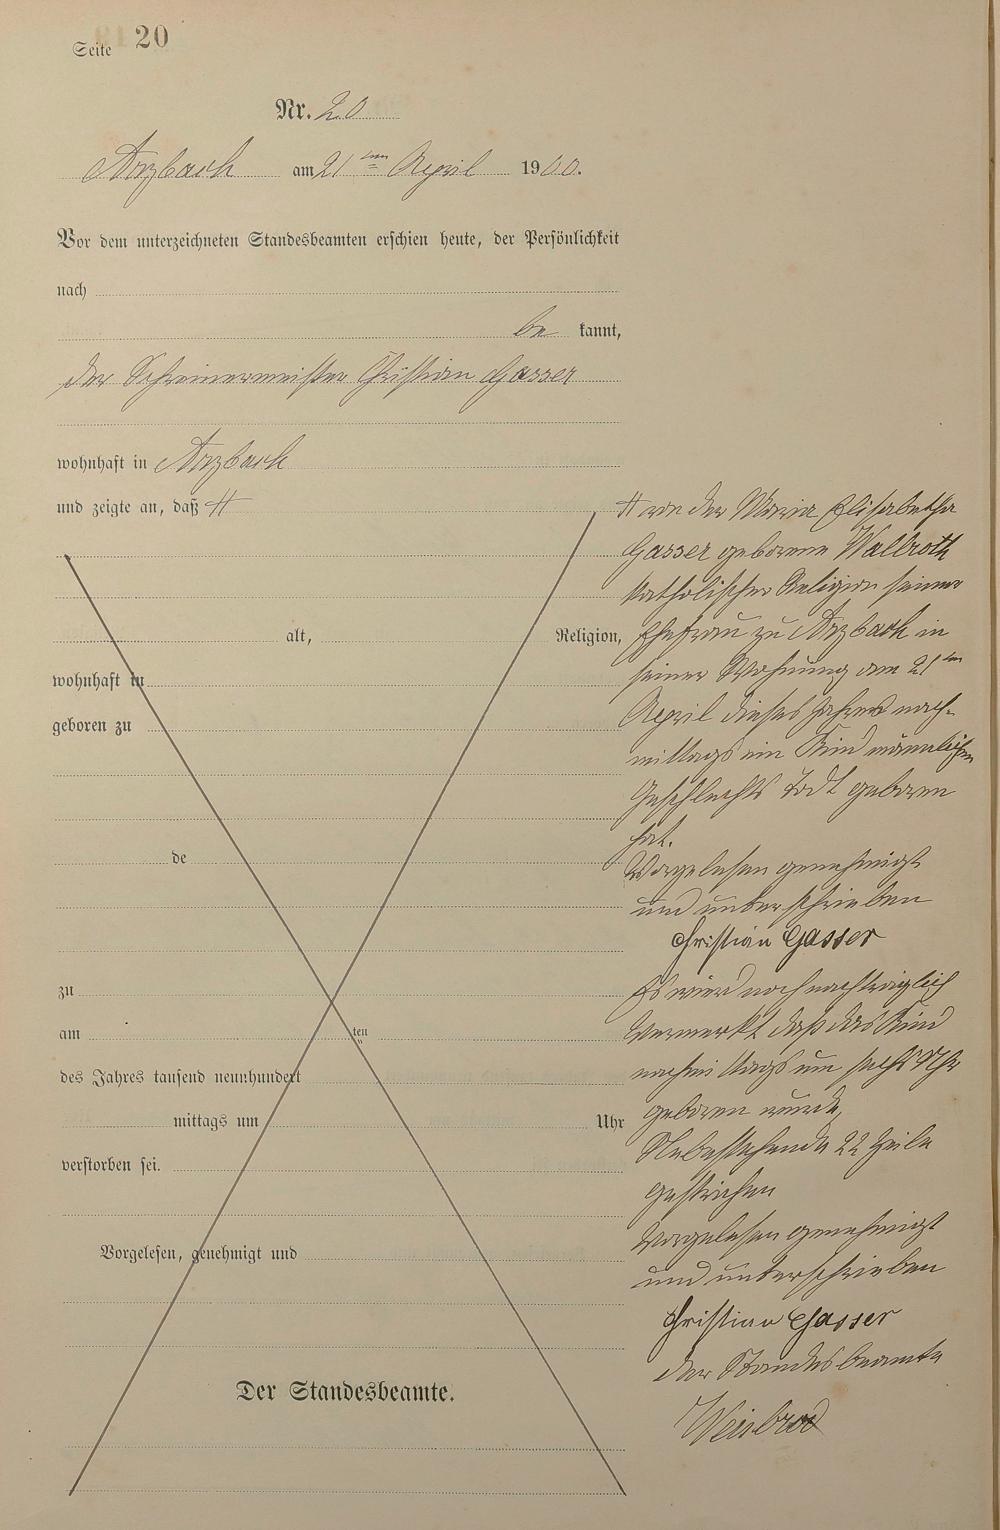 Seite 20
Nr. 20
Arzbach am 21ten April 1900.
Vor dem unterzeichneten Standesbeamten erschien heute, der Persönlichkeit
nach
be kannt,
der Schreinermeister Christian Gasser
wohnhaft in Arzbach
und zeigte an, daß #
alt, Religion,
wohnhaft in
geboren zu
de
zu
am ten
des Jahres tausend neunhundert
mittags um Uhr
verstorben sei.
Vorgelesen, genehmigt und
Der Standesbeamte.
# von der Maria Elisabetha
Gasser geborene Wallroth
katholischer Religion seiner
Ehefrau zu Arzbach in
seiner Wohnung am 21ten
April dieses Jahres nach-
mittags ein Kind männlichen
Geschlechts todt geboren
hat.
Vorgelesen genehmigt
und unterschrieben
Christian Gasser
Es wird noch nachträglich
vermerkt daß das Kind
nachmittags um sechs Uhr
geboren wurde,
Nebestehende 22 Zeile
gestrichen
Vorgelesen genehmigt
und unterschrieben
Christian Gasser
der Standesbeamte
Weisbrod